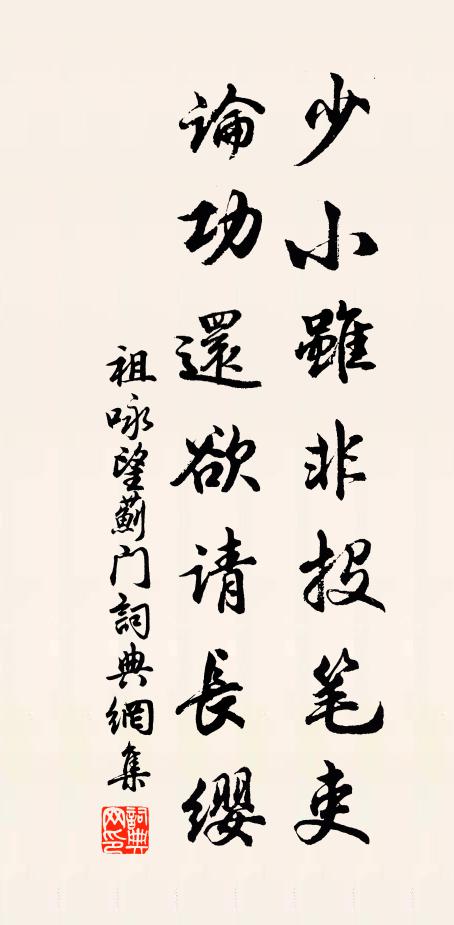 少小雖非投笔吏
論功還欲请長缨
祖咏望蓟门詞典網集
詞典网印